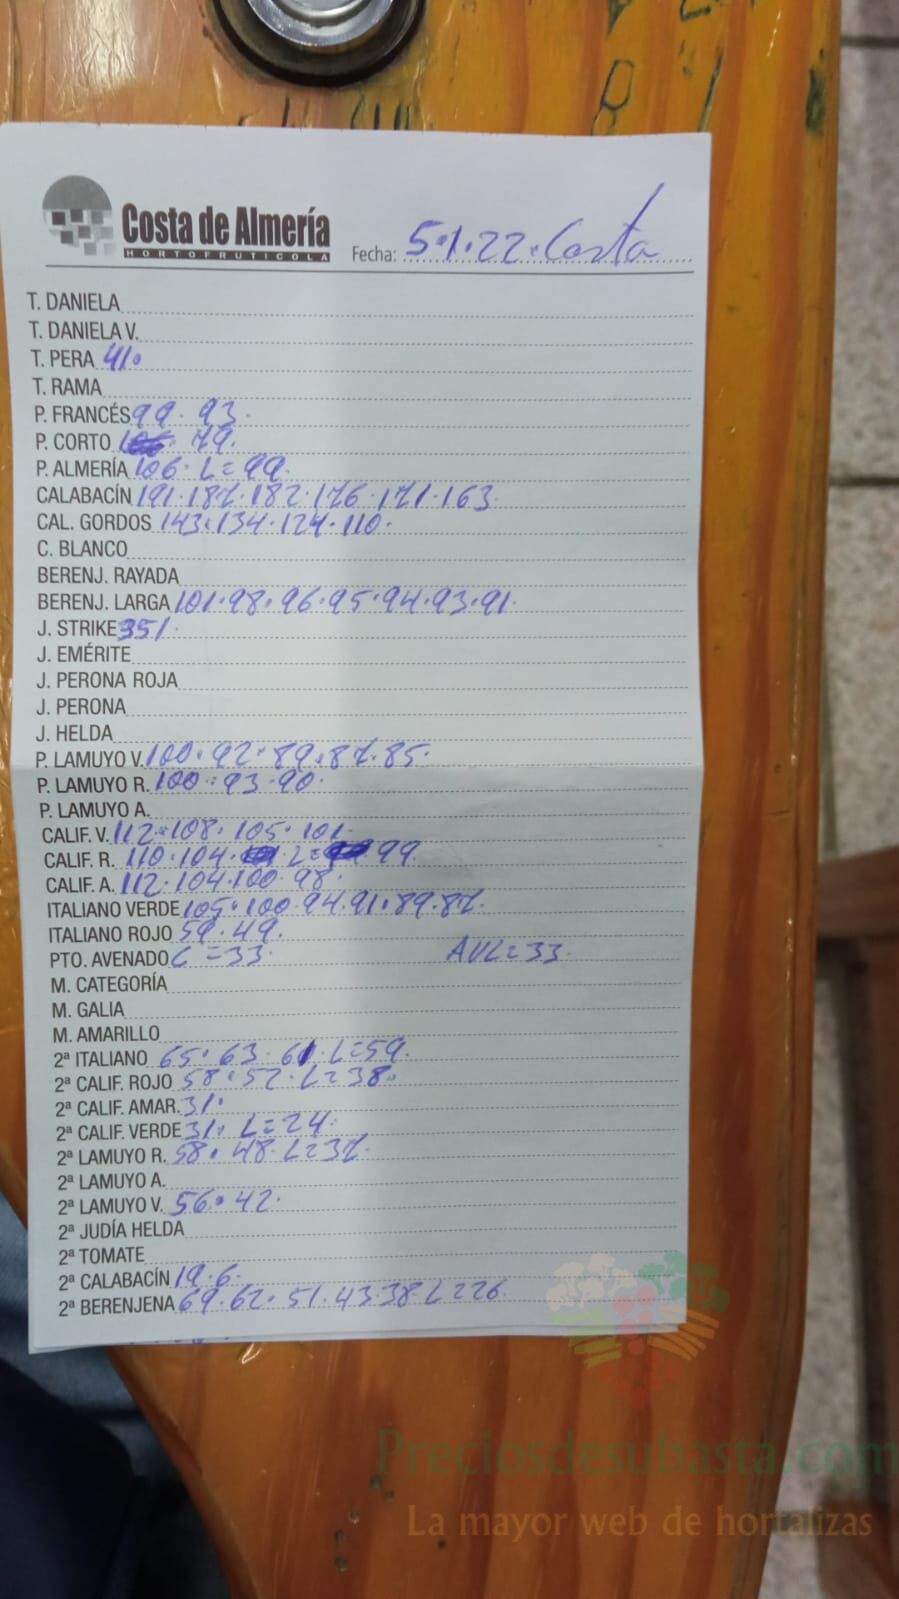 Costa de Almería
HORTOFRUTICOLA
Fecha: 5·1·22·Costa
T. DANIELA
T. DANIELA V.
T. PERA 41·
T. RAMA
P. FRANCÉS 99·93·
P. CORTO 79·
P. ALMERÍA 106·L=99·
CALABACÍN 191·187·182·176·171·163
CAL. GORDOS 143·134·124·110·
C. BLANCO
BERENJ. RAYADA
BERENJ. LARGA 101·98·96·95·94·93·91·
J. STRIKE 351·
J. EMÉRITE
J. PERONA ROJA
J. PERONA
J. HELDA
P. LAMUYO V. 100·92·89·87·85·
P. LAMUYO R. 100·93·90·
P. LAMUYO A.
CALIF. V. 112·108·105·101·
CALIF. R. 110·104· L= 99
CALIF. A. 112·104·100·98·
ITALIANO VERDE 105·100·94·91·89·87·
ITALIANO ROJO 59·49·
PTO. AVENADO C=33· AVL=33·
M. CATEGORÍA
M. GALIA
M. AMARILLO
2ª ITALIANO 65·63·61·L=59·
2ª CALIF. ROJO 58·52·L=38·
2ª CALIF. AMAR. 31·
2ª CALIF. VERDE 31·L=24·
2ª LAMUYO R. 58·48·L=37·
2ª LAMUYO A.
2ª LAMUYO V. 56·42·
2ª JUDÍA HELDA
2ª TOMATE
2ª CALABACÍN 19·6·
2ª BERENJENA 69·62·51·43·38·L=26·
Preciosdesubasta.com
La mayor web de hortalizas